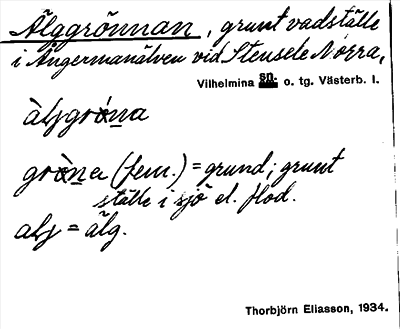 Älggrönnan, grunt vadställe
i Ångermanälven vid Stensele Norra,
Vilhelmina sn. o. tg. Västerb. l.
àljgròna
gròna (fem.) = grund; grunt
ställe i sjö el. flod.
alj = älg.
Thorbjörn Eliasson, 1934.